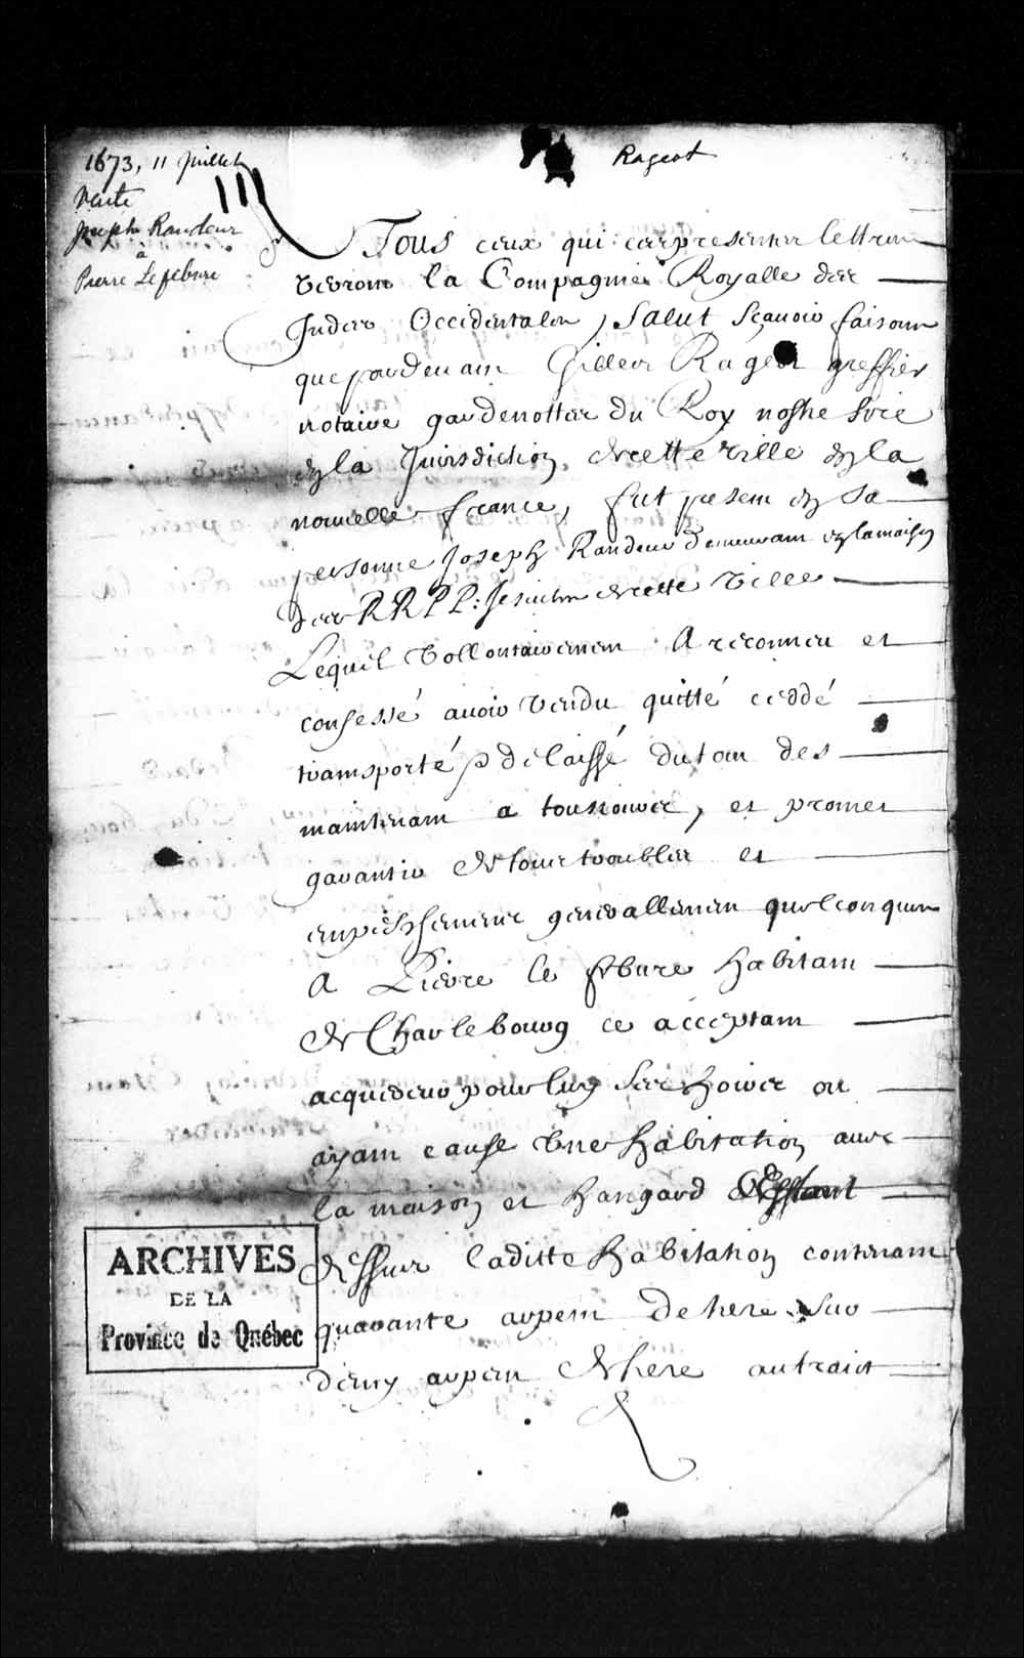 1673, 11 Juillet
Vente
Joseph Randeur
à
Pierre Lefebure
Rageot
A Tous ceux qui ces presentes lettres
verront la Compagnie Royalle des
Indes Occidentales, Salut Sçavoir faisons
que pardevant Gilles Rageot greffier
notaire gardenottes du Roy nostre Sire
en la Jurisdiction de cette ville en la
nouvelle france, fut present en sa
personne Joseph Randeur demeurant en la maison
des RR PP: Jesuites de cette ville
Lequel vollontairement A reconneu et
confessé avoir vendu quitté ceddé
transporté & delaissé du tout des
maintenant a tousiours, et promet
garantir de tous troubles et
empeschemens generallement quelconques
A Pierre le febure habitant
de Charlebourg ce acceptant
acquereur pour luy ses hoirs ou
ayant cause une habitation avec
la maison et hangard Estant
dessus laditte habitation contenant
quarante arpens de terre sur
demy arpent de terre